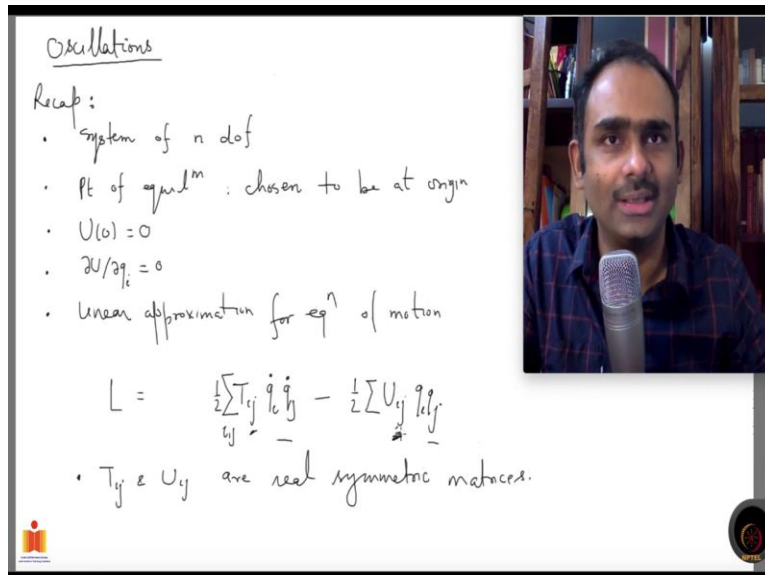 Oscillations
Recap:
• System of n dof
• Pt of equilᵐ : chosen to be at origin
• U(0) = 0
• ∂U/∂qᵢ = 0
• Linear approximation for eqⁿ of motion
L = ½ Σ Tᵢⱼ q̇ᵢ q̇ⱼ − ½ Σ Uᵢⱼ qᵢ qⱼ
i,j
• Tᵢⱼ & Uᵢⱼ are real symmetric matrices.
NPTEL